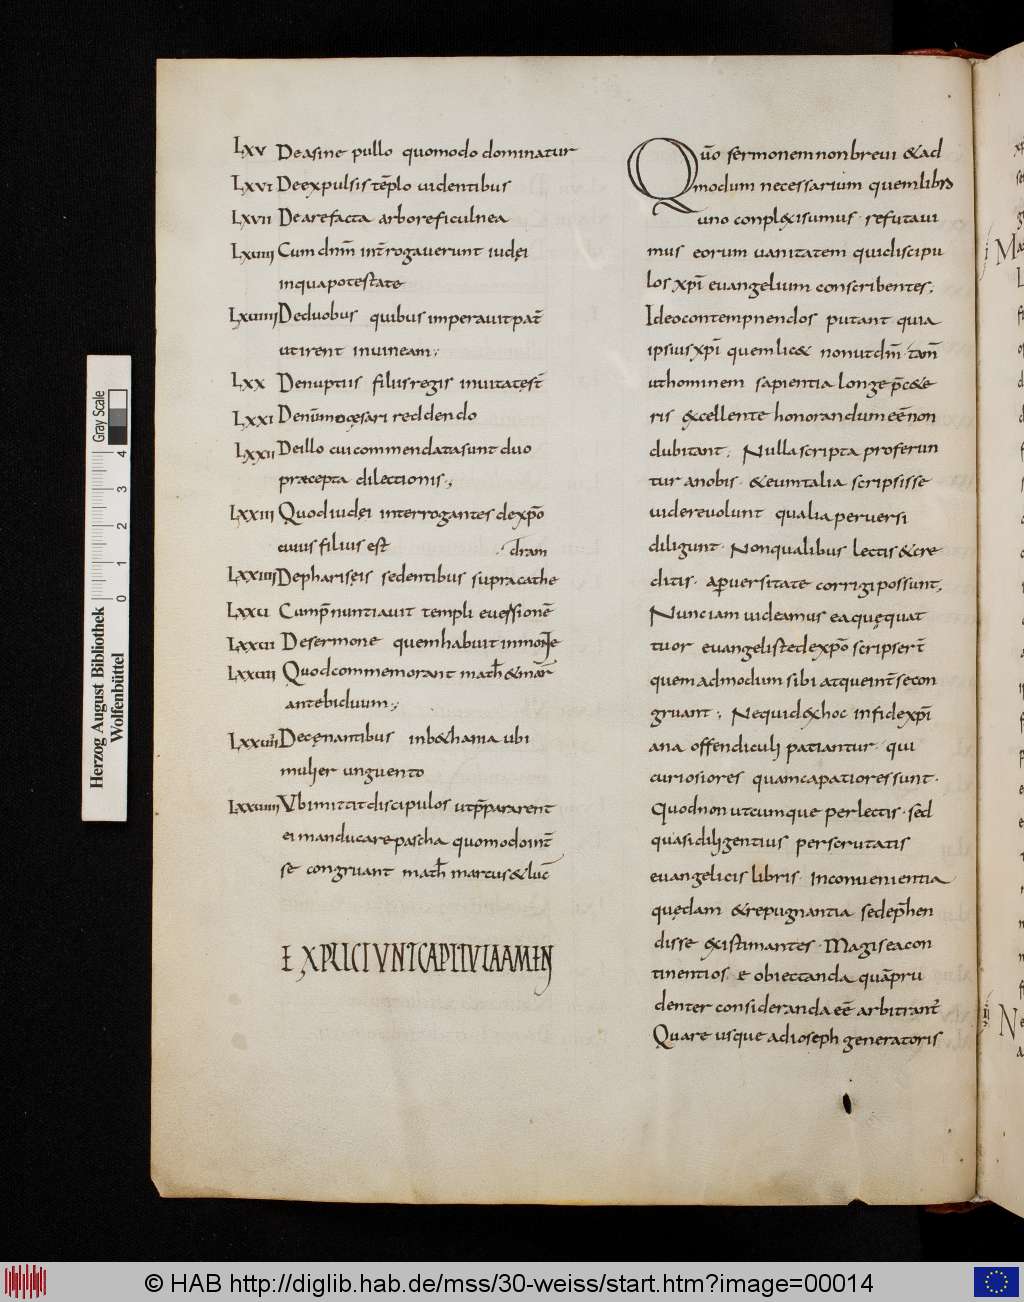 LXV De asine pullo quomodo dominatur
LXVI De expulsis tēplo videntibus
LXVII De arefacta arbore ficulnea
LXVIII Cum dnm̄ int̄rogaverunt iudęi
in qua potestate
LXVIIII De duobus quibus imperavit pat̄
ut irent in vineam;
LXX De nuptiis filius regis invitatęst̄
LXXI De nūmo cęsari reddendo
LXXII De illo cui commendata sunt duo
præcepta dilectionis;
LXXIII Quod iudęi interrogantes de xp̄o
cuius filius est
LXXIIII De pharisęis sedentibus supra cathe
dram
LXXVI Cum p̄nuntiavit templi evessionē
LXXVII De sermone quem habuit in monte
LXXVIII Quod commemorant math̄ & mar̄
ante biduum;
De cęnantibus in b&hania ubi
mulier unguento
Ubi mittit discipulos ut p̄pararent
ei manducare pascha quomodo int̄
se congruant math̄ marcus & luc̄
EXPLICIUNT CAPITULA AMEN
Quō sermonem non brevi & ad
modum necessarium quem libro
uno conplexi sumus refutavi
mus eorum vanitatem qui discipu
los xp̄i evangelium conscribentes;
Ideo contempnendos putant quia
ipsius xp̄i quem lic& non ut dm̄ tam̄
ut hominem sapientia longe p̄c&e
ris excellente honorandum eē non
dubitant; Nulla scripta proferun
tur a nobis & eum talia scripsisse
videre volunt qualia perversi
diligunt Non qualibus lectis & cre
ditis a pversitate corrigi possunt,
Nunc iam videamus ea quę quat
tuor evangelistę de xp̄o scripser̄t
quem admodum sibi atque int̄ se con
gruant; Ne quid ex hoc in fide xp̄i
ana offendiculi patiantur qui
curiosiores quam capatiores sunt
Quod non utcumque perlectis sed
quasi diligentius perscrutatis
evangelicis libris inconvenientia
quędam & repugnantia se dep̄hen
disse existimantes Magis ea con
tentiosę obiectanda quā pru
denter consideranda eē arbitrant̄
Quare usque ad ioseph generatoris
Herzog August Bibliothek
Wolfenbüttel
Gray Scale
0 1 2 3 4
© HAB http://diglib.hab.de/mss/30-weiss/start.htm?image=00014